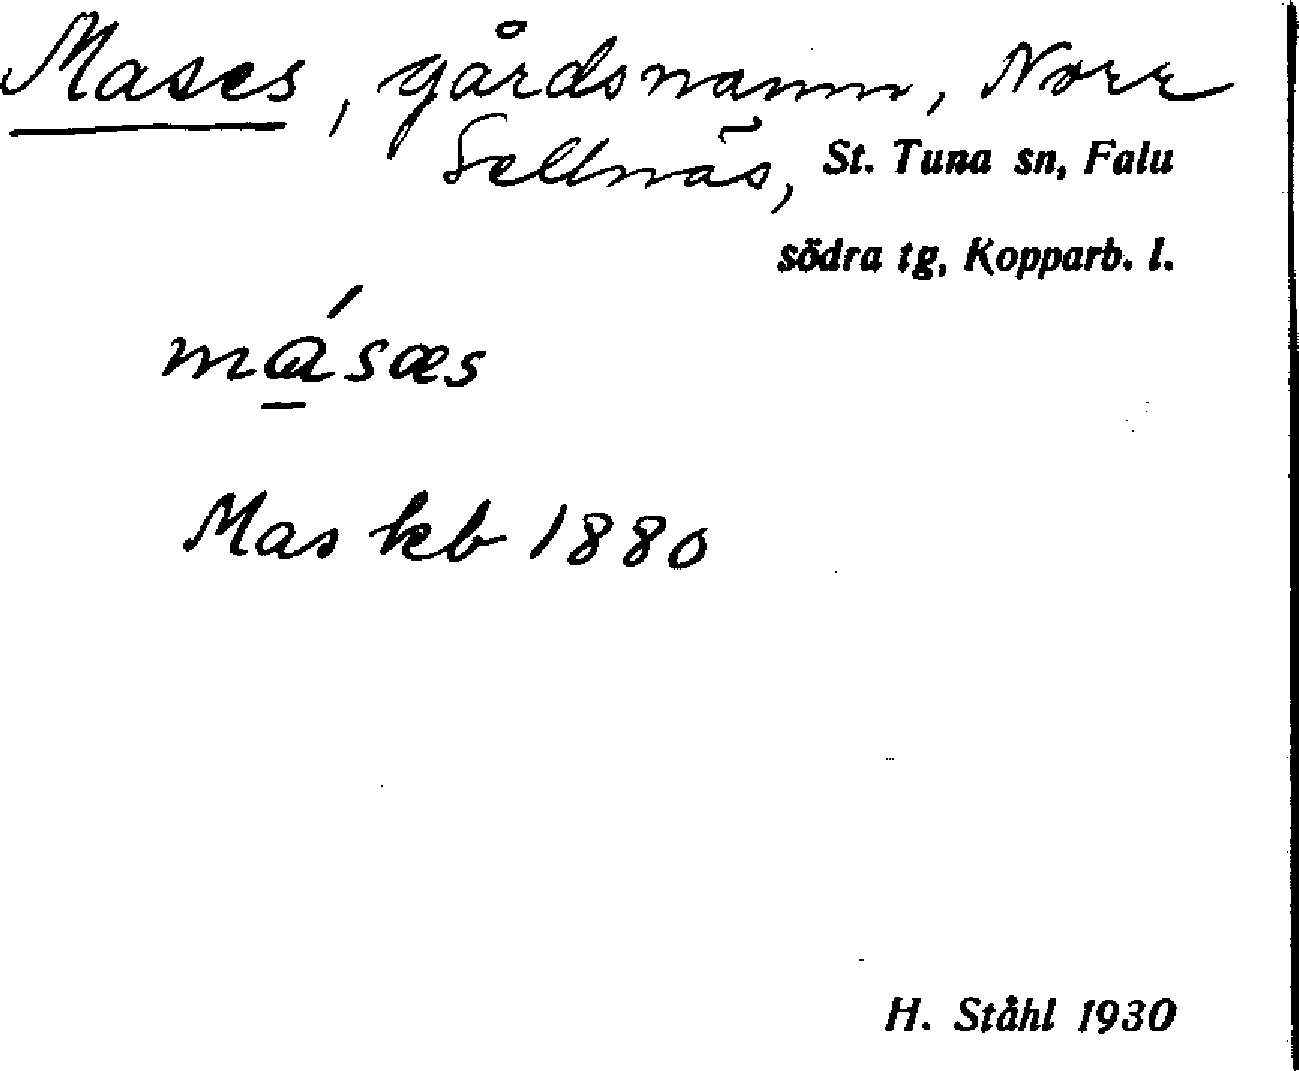 Mases, gårdsnamn, Norr
Sellnäs, St. Tuna sn, Falu
södra tg, Kopparb. l.
má̲sæs
Mas kb 1880
H. Ståhl 1930